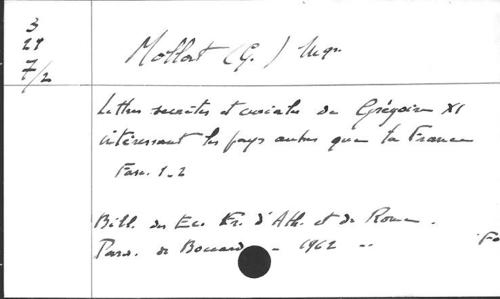 3
29
7/2
Mollat (G.) Mgr.
Lettres secrètes et curiales de Grégoire XI
intéressant les pays autres que la France
Fasc. 1-2
Bibl. des Ec. Fr. d'Ath. et de Rome.
Paris. de Boccard - 1962 -
Fo